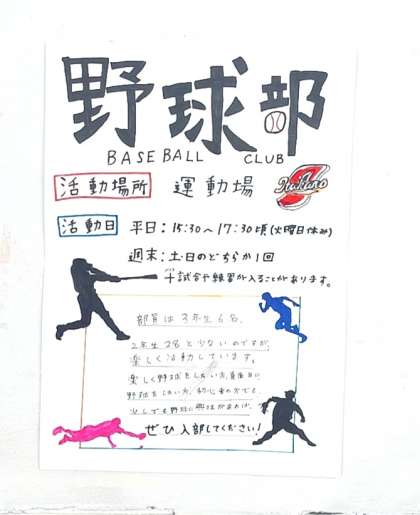 野球部
BASEBALL CLUB
活動場所 運動場
活動日 平日:15:30～17:30頃(火曜日休み)
週末:土・日のどちらか1回
試合や練習が入ることがあります。
部員は3年生6名、
2年生2名と少ないのですが、
楽しく活動しています。
楽しく野球をしたい方、真面目に
野球をしたい方、初心者の方でも、
少しでも野球に興味があれば、
ぜひ入部してください!